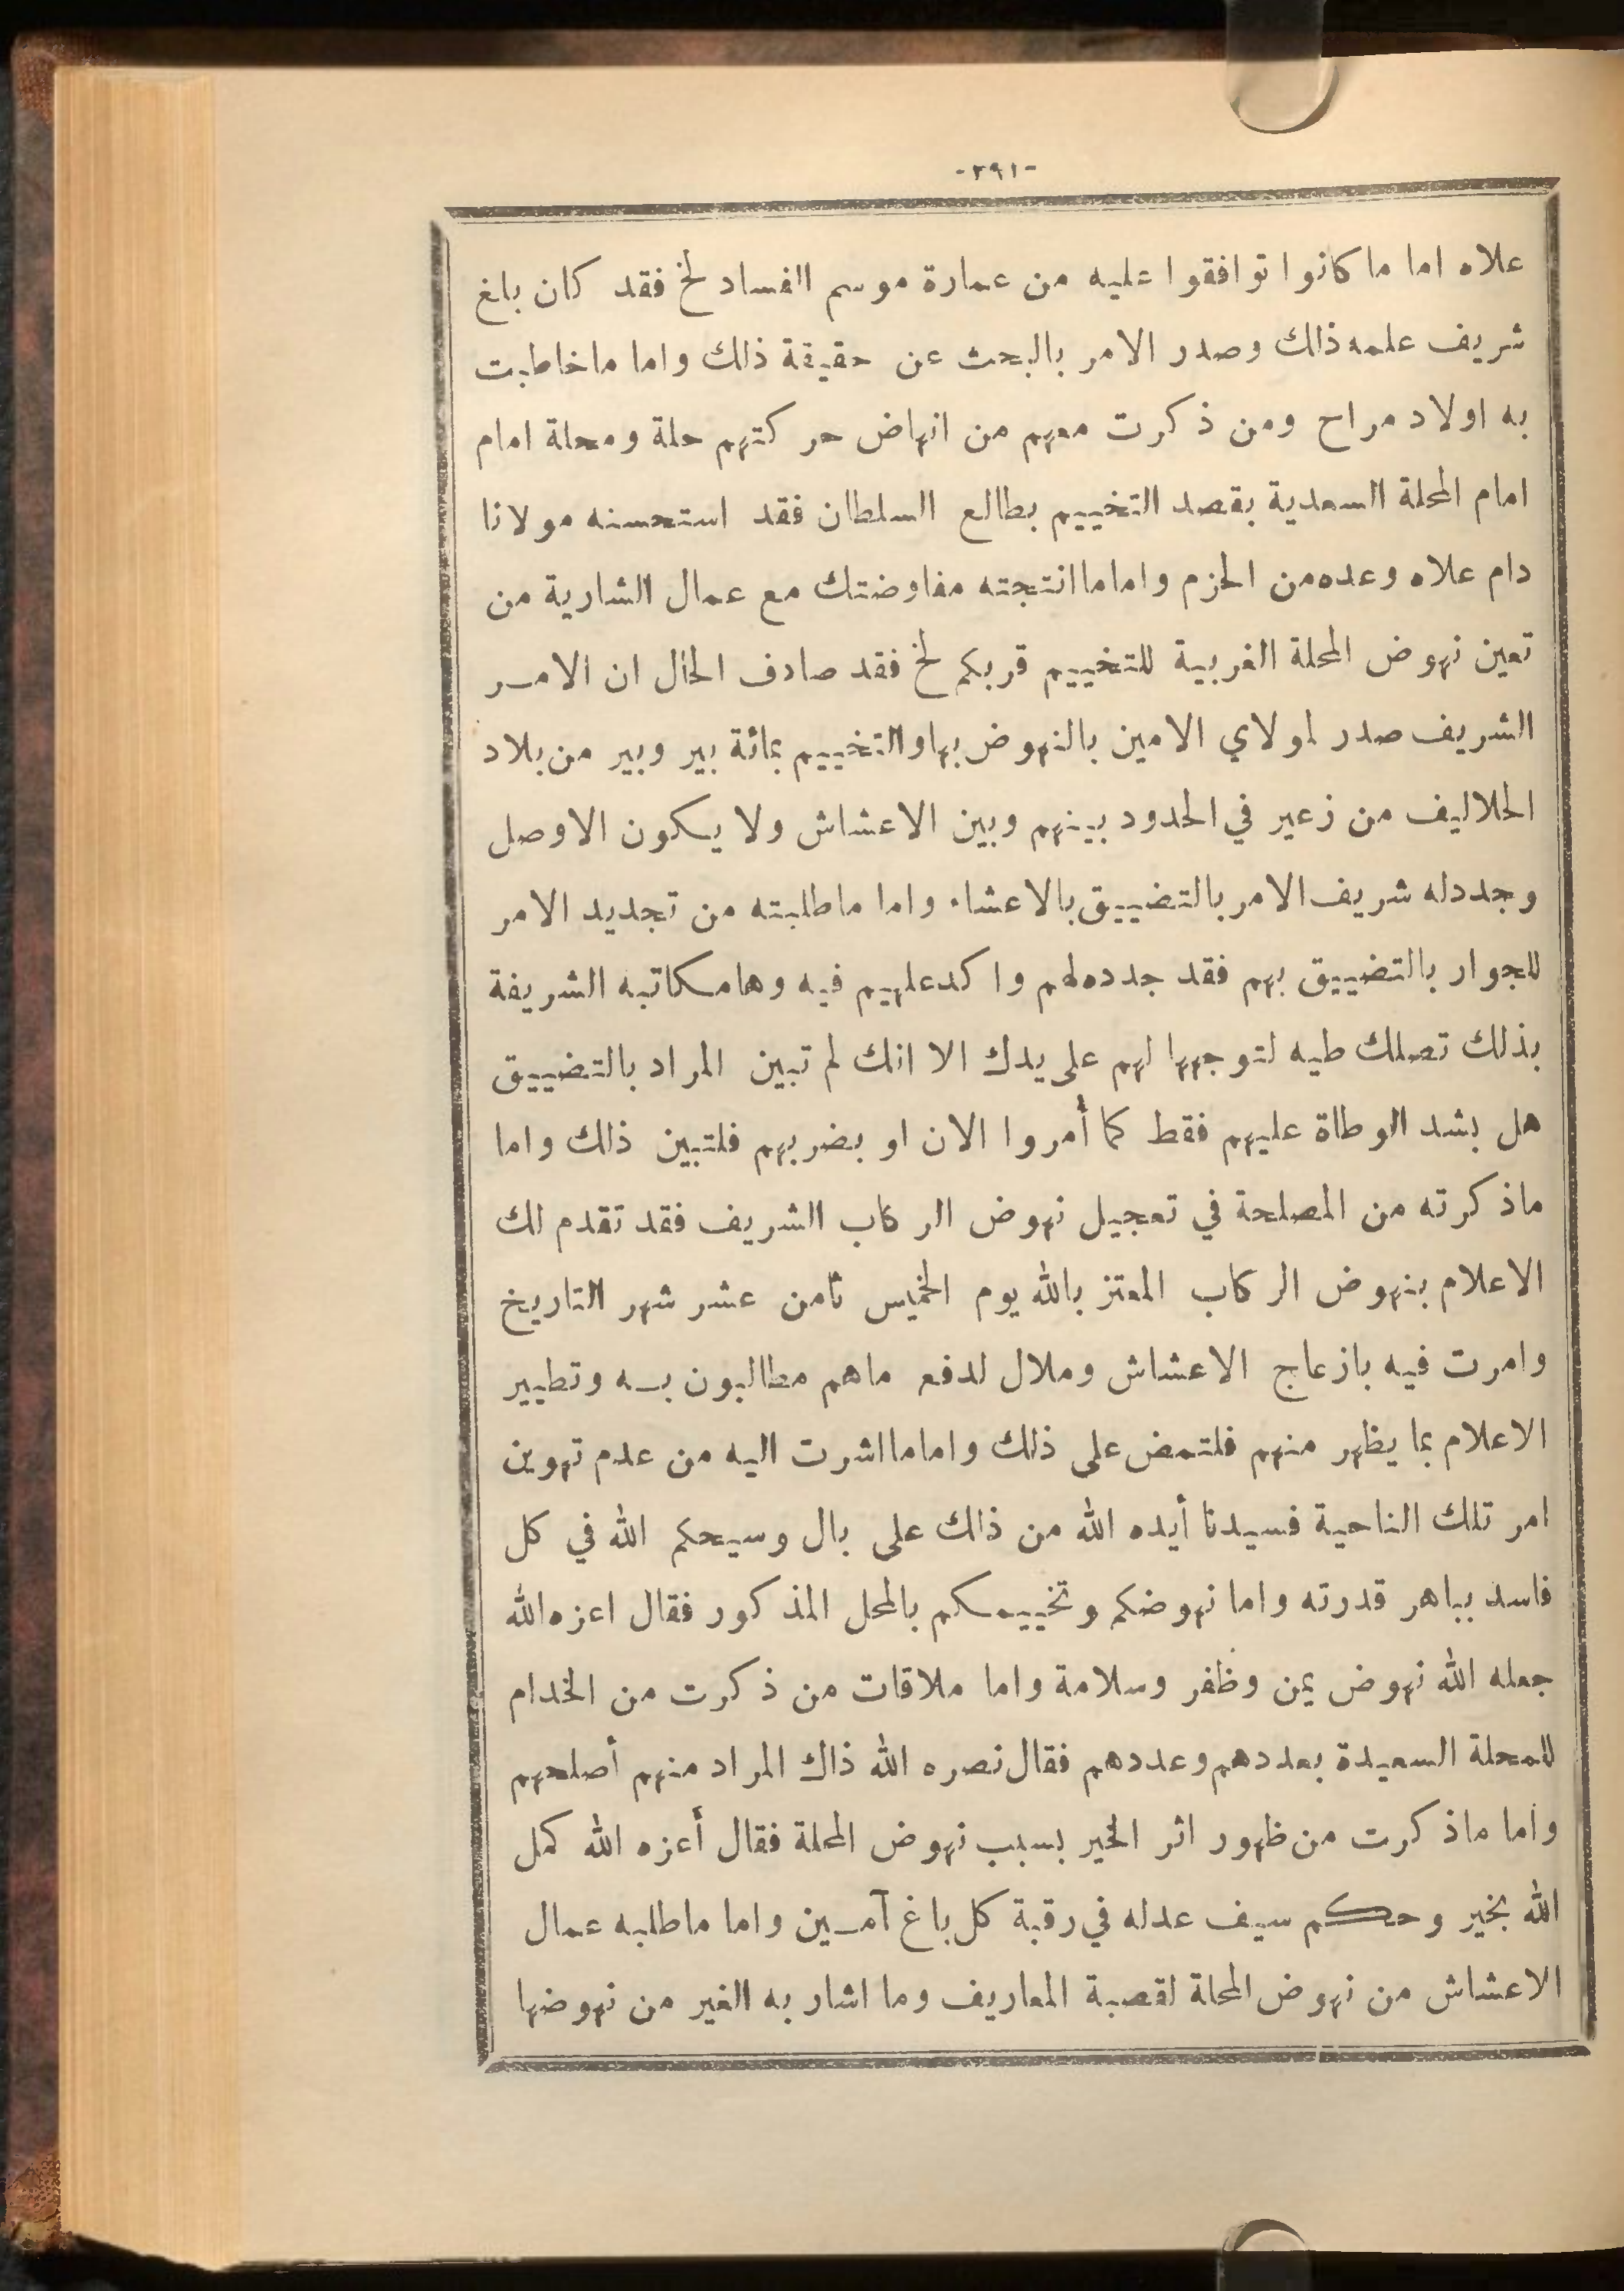 -٢٩١-
علاه اما ما كانوا توافقوا عليه من عمارة موسم الفساد لخ فقد كان بلغ
شريف علمه ذلك وصدر الامر بالبحث عن حقيقة ذلك واما ما خاطبت
به اولاد مراح ومن ذكرت معهم من انهاض حركتهم حلة ومحلة امام
امام المحلة السعدية بقصد التخييم بطالع السلطان فقد استحسنه مولانا
دام علاه وعده من الحزم واما ما انتجته مفاوضتك مع عمال الشارية من
تعين نهوض المحلة الغربية للتخييم قربكم لخ فقد صادف الحال ان الامر
الشريف صدر لمولاي الامين بالنهوض بها والتخييم بمائة بير وبير من بلاد
الحلاليف من زعير في الحدود بينهم وبين الاعشاش ولا يكون الاوصل
وجدد له شريف الامر بالتضييق بالاعشاء واما ما طلبته من تجديد الامر
للجوار بالتضييق بهم فقد جدده لهم واكد عليهم فيه وها مكاتبه الشريفة
بذلك تصلك طيه لتوجهها لهم على يدك الا انك لم تبين المراد بالتضييق
هل بشد الوطاة عليهم فقط كما أمروا الان او بضربهم فلتبين ذلك واما
ما ذكرته من المصلحة في تعجيل نهوض الركاب الشريف فقد تقدم لك
الاعلام بنهوض الركاب المعتز بالله يوم الخميس ثامن عشر شهر التاريخ
وامرت فيه بازعاج الاعشاش وملال لدفع ما هم مطالبون به وتطيير
الاعلام بما يظهر منهم فلتمض على ذلك واما ما اشرت اليه من عدم تهوين
امر تلك الناحية فسيدنا أيده الله من ذلك على بال وسيحكم الله في كل
فاسد بباهر قدرته واما نهوضكم وتخييمكم بالمحل المذكور فقال اعزه الله
جعله الله نهوض يمن وظفر وسلامة واما ملاقات من ذكرت من الخدام
للمحلة السعيدة بعددهم وعددهم فقال نصره الله ذاك المراد منهم أصلحهم
واما ما ذكرت من ظهور اثر الخير بسبب نهوض المحلة فقال أعزه الله كمل
الله بخير وحكم سيف عدله في رقبة كل باغ آمين واما ما طلبه عمال
الاعشاش من نهوض المحلة لقصبة المعاريف وما اشار به الغير من نهوضها